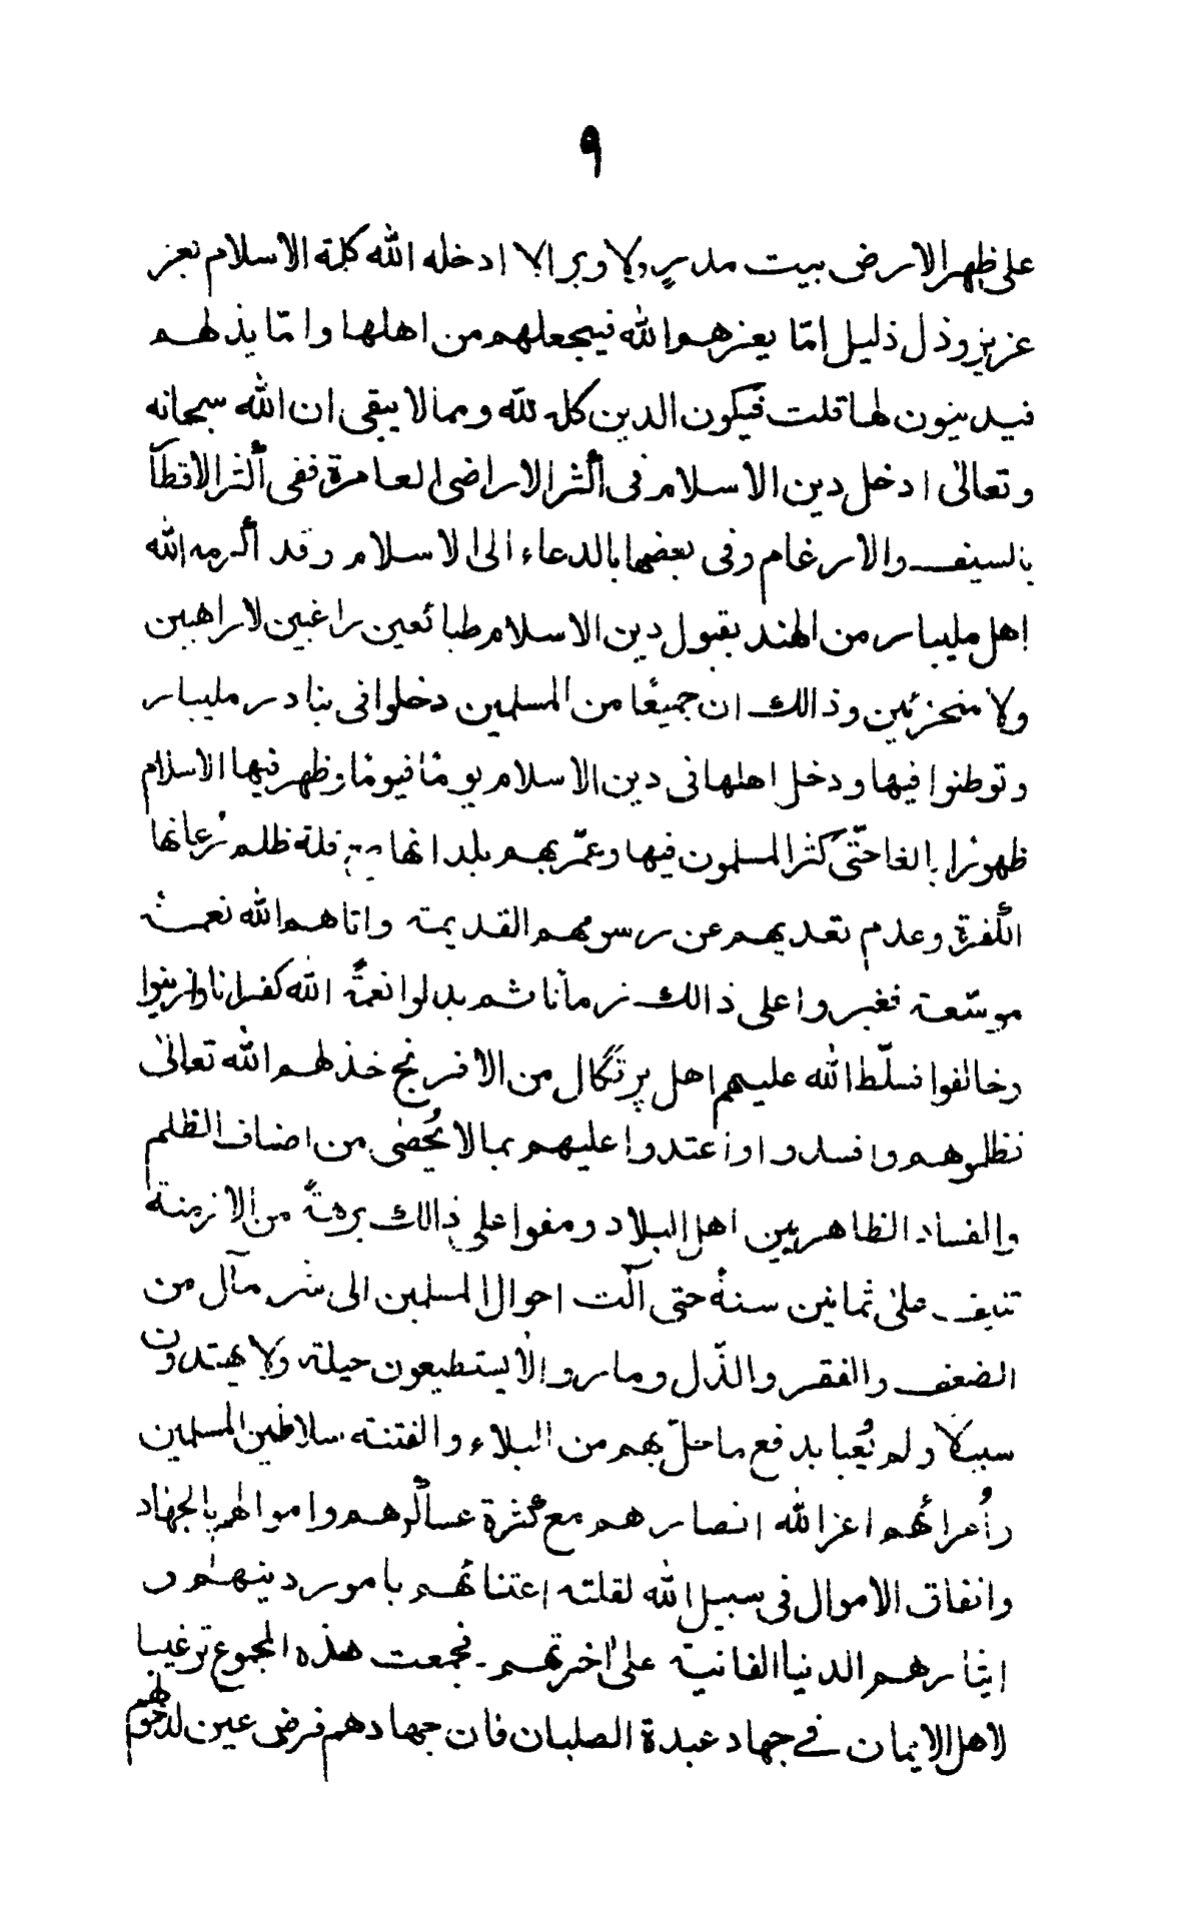 ٩
على ظهر الارض بيت مدر ولا وبر الا ادخله الله كلمة الاسلام بعز
عزيز وذل ذليل امّا يعزهم الله فيجعلهم من اهلها وامّا يذلهم
فيدينون لها قلت فيكون الدين كله لله ومما لا يبقى ان الله سبحانه
وتعالى ادخل دين الاسلام فى اكثر الاراضى العامرة ففى اكثر الاقطار
بالسيف والارغام وفى بعضها بالدعاء الى الاسلام وقد اكرم الله
اهل مليبار من الهند بقبول دين الاسلام طبائعين راغبين لا راهبين
ولا منحزبين وذالك ان جميعًا من المسلمين دخلوا فى بنادر مليبار
وتوطنوا فيها ودخل اهلها فى دين الاسلام يومًا فيومًا وظهر فيها الاسلام
ظهورًا بالغا حتّى كثر المسلمون فيها وعمّر بهم بلدانها مع قلة ظلم رُعانها
الكفرة وعدم تعديهم عن رسومهم القديمة واتاهم الله نعمة
موسّعة فغبروا على ذالك زمانًا ثم بدلوا نعمةً الله كفرانا واذنبوا
وخالفوا فسلّط الله عليهم اهل پرتكال من الافرنج خذلهم الله تعالى
فظلموهم وافسدوا واعتدوا عليهم بما لا يُحصٰى من اصناف الظلم
والفساد الظاهر بين اهل البلاد ومضوا على ذالك برهةً من الازمنة
تنيف على ثمانين سنة حتى آلت احوال المسلمين الى شر مآل من
الضعف والفقر والذّل وماروا لا يستطيعون حيلة ولا يهتدون
سبيلا ولم يُعبا بدفع ما حلّ بهم من البلاء والفتنة سلاطين المسلمين
وأُمرائهم اعز الله انصارهم مع كثرة عساكرهم واموالهم بالجهاد
وانفاق الاموال فى سبيل الله لقلته اعتنائهم بامور دينهم و
ايثارهم الدنيا الفانية على اخرتهم ـ فجمعت هذه المجموع ترغيبا
لاهل الايمان في جهاد عبدة الصلبان فان جهادهم فرض عين لدخولهم